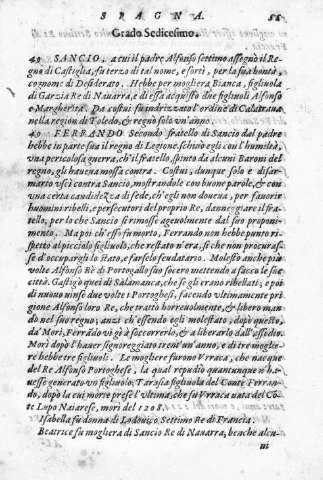 SPAGNA. 55
Grado Sedicesimo.
49 SANCIO, a cui il padre Alfonso settimo assegnò il Re-
gno di Castiglia, fu terzo di tal nome, e sortì, per la sua bontà,
cognome di Desiderato. Hebbe per mogliera Bianca, figliuola
di Garzia Re di Nauarra, e di essa acquistò due figliuoli Alfonso
e Margherita. Da costui fu indrizzato l'ordine di Calatraua
nella region di Toledo, & regnò solo vn'anno.
49 FERRANDO Secondo fratello di Sancio dal padre
hebbe in parte sua il regno di Legone. schiuò egli con l'humiltà,
vna pericolosa guerra, ch'il fratello, spinto da alcuni Baroni del
regno, gli haueua mossa contra. Costui, dunque solo e disar-
mato uscì contra Sancio, mostrandole con buone parole, & con
vna certa candidezza di fede, ch'egli non doueua, per fauorir
huomini ribelli, e persecutori del proprio Re, danneggiare il fra-
tello, per lo che Sancio si rimosse ageuolmente dal suo proponi-
mento. Ma poi ch'esso fu morto, Ferrando non hebbe punto ri-
spetto al picciolo figliuolo, che restato n'era, sì che non procuras-
se d'occupargli lo stato, e farselo feudatario. Molestò anche più
volte Alfonso Rè di Portogallo suo socero mettendo a sacco le sue
città. Gastigò quei di Salamanca, che se gli erano ribellati; e poi
di nuouo uinse due volte i Portoghesi, facendo vltimamente pri-
gione Alfonso loro Re, che trattò horreuolmente, & libero man-
dò nel suo regno; anzi ch'essendo egli molestato, dopò questo,
da' Mori, Ferrãdo vi gò à soccorrerlo, & a liberarlo dall'assedio.
Morì dopò l'hauer signoreggiato trent'un'anno, e di tre moglie-
re hebbe tre figliuoli. Le mogliere furono Vrraca, che nacque
del Re Alfonso Portoghese, la qual repudiò quantunque n'ha-
uesse generato vn figliuolo; Tarasia figliuola del Conte Ferran-
do, dopò la cui morte prese l'vltima, che fu Vrraca nata del Cō-
te Lupo Naiarese, morì del 1208.
Isabella fu donna di Lodouico Settimo Re di Francia.
Beatrice fu mogliera di Sancio Re di Nauarra, benche alcu-
ni